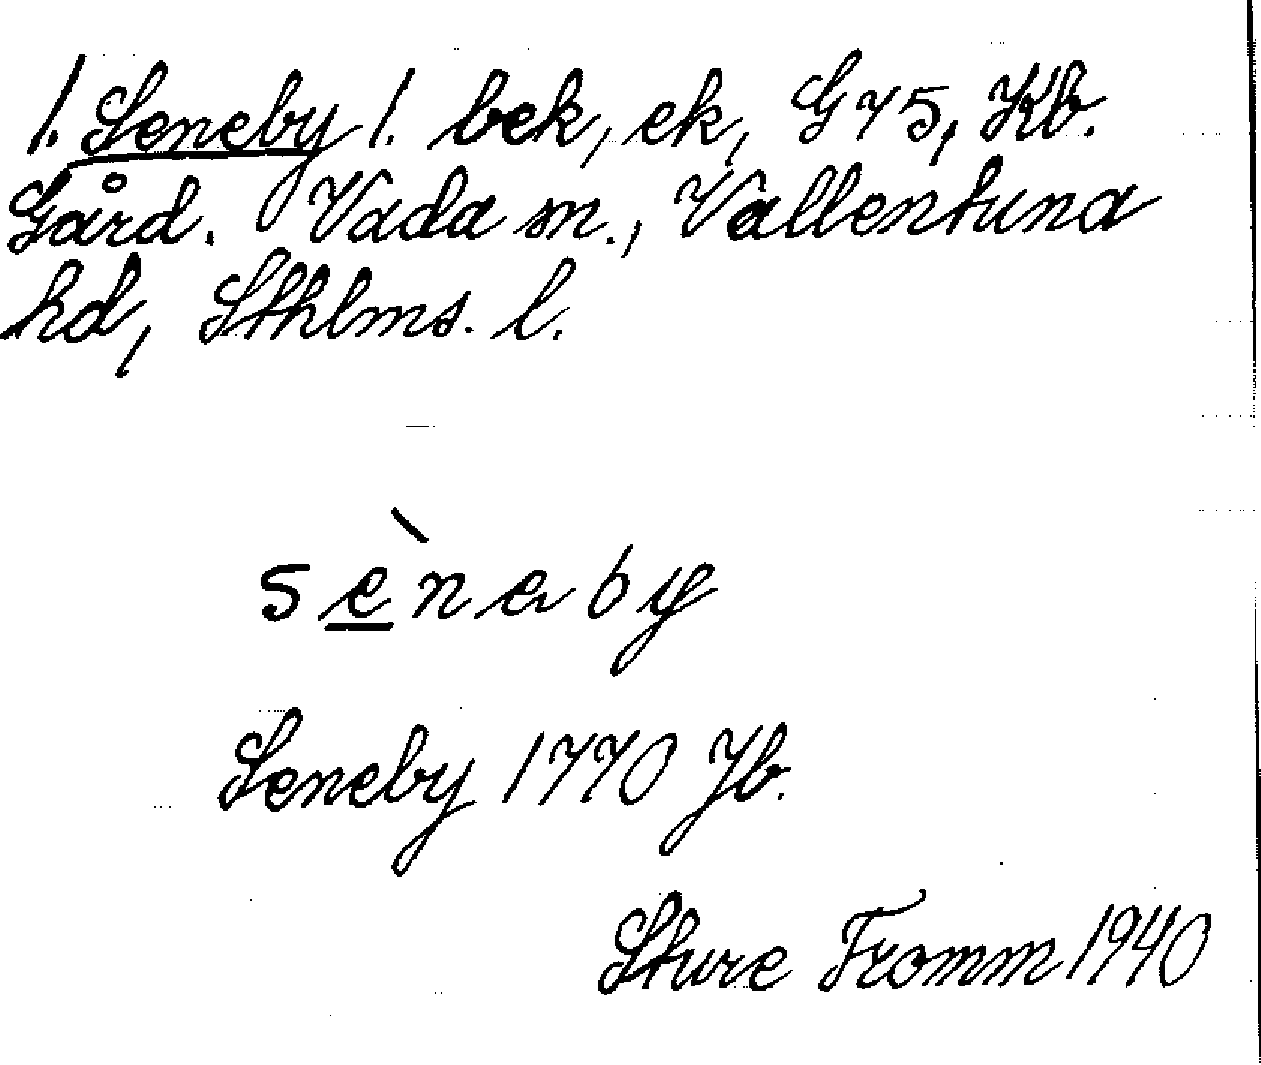 1. Seneby 1. bek, ek, G 75, Kb.
Gård. Vada sn., Vallentuna
hd, Sthlms. l.
sènaby
Seneby 1770 Jb.
Sture Fromm 1940